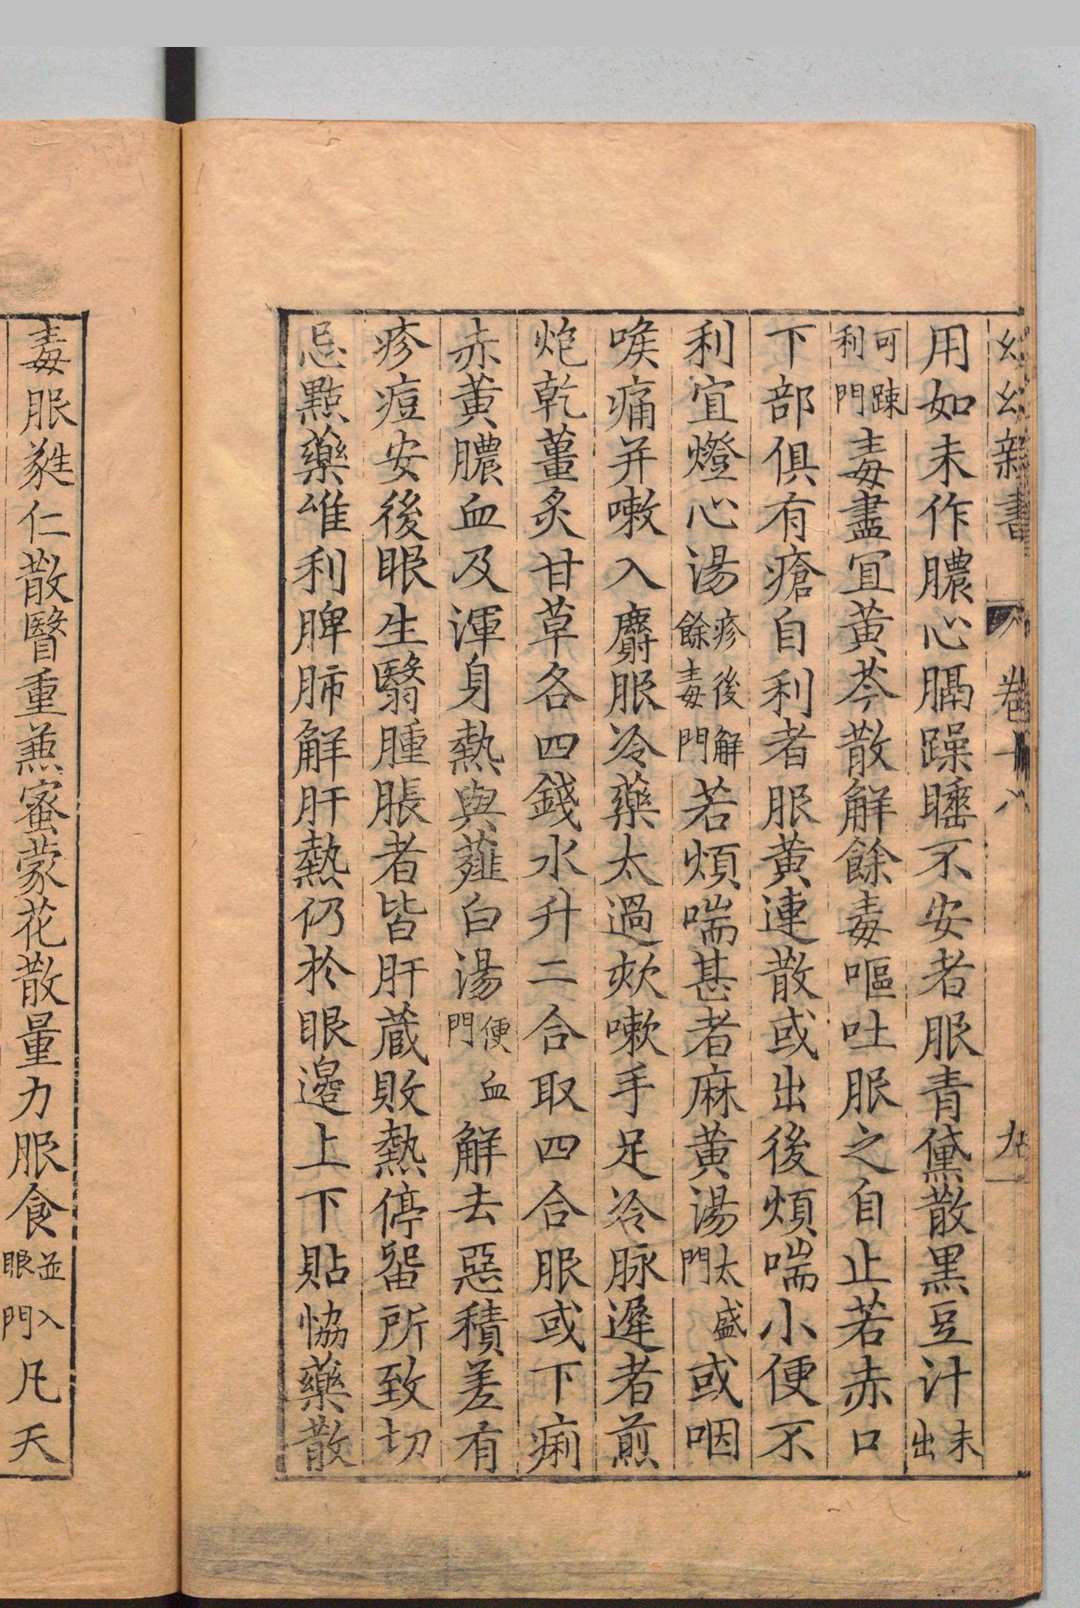 幼幼新書 卷十八 九
用如未作膿心膈躁瞳不安者服青黛散黑豆汁未出
可踈利門毒盡宜黃芩散解餘毒嘔吐服之自止若赤口
下部俱有瘡自利者服黃連散或出後煩喘小便不
利宜燈心湯疹後解餘毒門若煩喘甚者麻黃湯太盛門或咽
喉痛并嗽入麝服冷藥太過欬嗽手足冷脉遲者煎
炮乾薑炙甘草各四錢水升二合取四合服或下痢
赤黃膿血及渾身熱與薤白湯便血門解去惡積差有
疹痘安後眼生翳腫脹者皆肝藏敗熱停畱所致切
忌點藥惟利脾肺解肝熱仍於眼邊上下貼恊藥散
毒服蕤仁散醫重蒸蜜蒙花散量力服食並入眼門凡天